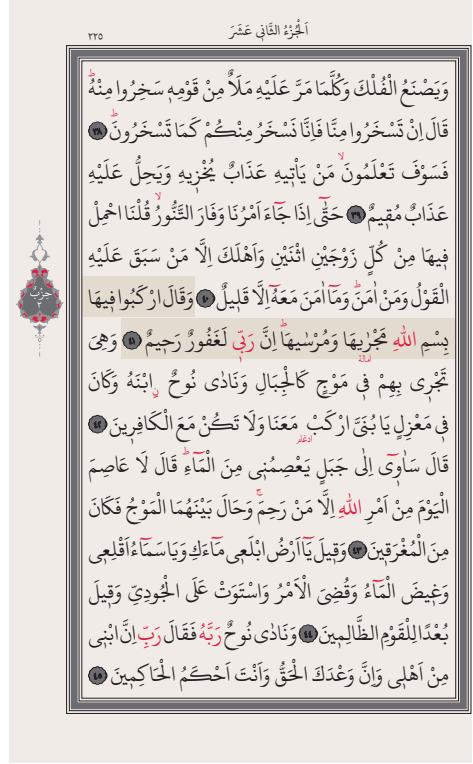 اَلْجُزْءُ الثَّانِي عَشَرَ
٢٢٥
وَيَصْنَعُ الْفُلْكَ وَكُلَّمَا مَرَّ عَلَيْهِ مَلَأٌ مِنْ قَوْمِهِ سَخِرُوا مِنْهُۜ
قَالَ اِنْ تَسْخَرُوا مِنَّا فَاِنَّا نَسْخَرُ مِنْكُمْ كَمَا تَسْخَرُونَۜ ٣٨
فَسَوْفَ تَعْلَمُونَۙ مَنْ يَأْتِيهِ عَذَابٌ يُخْزِيهِ وَيَحِلُّ عَلَيْهِ
عَذَابٌ مُقِيمٌ ٣٩ حَتّٰٓى اِذَا جَٓاءَ اَمْرُنَا وَفَارَ التَّنُّورُۙ قُلْنَا احْمِلْ
فِيهَا مِنْ كُلٍّ زَوْجَيْنِ اثْنَيْنِ وَاَهْلَكَ اِلَّا مَنْ سَبَقَ عَلَيْهِ
الْقَوْلُ وَمَنْ اٰمَنَۜ وَمَٓا اٰمَنَ مَعَهُٓ اِلَّا قَلِيلٌ ٤٠ وَقَالَ ارْكَبُوا فِيهَا
بِسْمِ اللّٰهِ مَجْرٰۭيهَا وَمُرْسٰيهَاۜ اِنَّ رَبِّي لَغَفُورٌ رَحِيمٌ ٤١ وَهِيَ
امالة
تَجْرِي بِهِمْ فِي مَوْجٍ كَالْجِبَالِ وَنَادٰى نُوحٌۨ ابْنَهُ وَكَانَ
فِي مَعْزِلٍ يَا بُنَيَّ ارْكَبْ مَعَنَا وَلَا تَكُنْ مَعَ الْكَافِرِينَ ٤٢
ادغام
قَالَ سَاٰوِٓي اِلٰى جَبَلٍ يَعْصِمُنِي مِنَ الْمَٓاءِۜ قَالَ لَا عَاصِمَ
الْيَوْمَ مِنْ اَمْرِ اللّٰهِ اِلَّا مَنْ رَحِمَۚ وَحَالَ بَيْنَهُمَا الْمَوْجُ فَكَانَ
مِنَ الْمُغْرَقِينَ ٤٣ وَقِيلَ يَٓا اَرْضُ ابْلَعِي مَٓاءَكِ وَيَا سَمَٓاءُ اَقْلِعِي
وَغِيضَ الْمَٓاءُ وَقُضِيَ الْاَمْرُ وَاسْتَوَتْ عَلَى الْجُودِيِّ وَقِيلَ
بُعْدًا لِلْقَوْمِ الظَّالِمِينَ ٤٤ وَنَادٰى نُوحٌ رَبَّهُ فَقَالَ رَبِّ اِنَّ ابْنِي
مِنْ اَهْلِي وَاِنَّ وَعْدَكَ الْحَقُّ وَاَنْتَ اَحْكَمُ الْحَاكِمِينَ ٤٥
حزب
٢